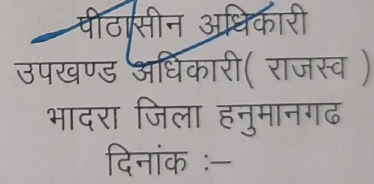 पीठासीन अधिकारी
उपखण्ड अधिकारी( राजस्व )
भादरा जिला हनुमानगढ
दिनांक :–